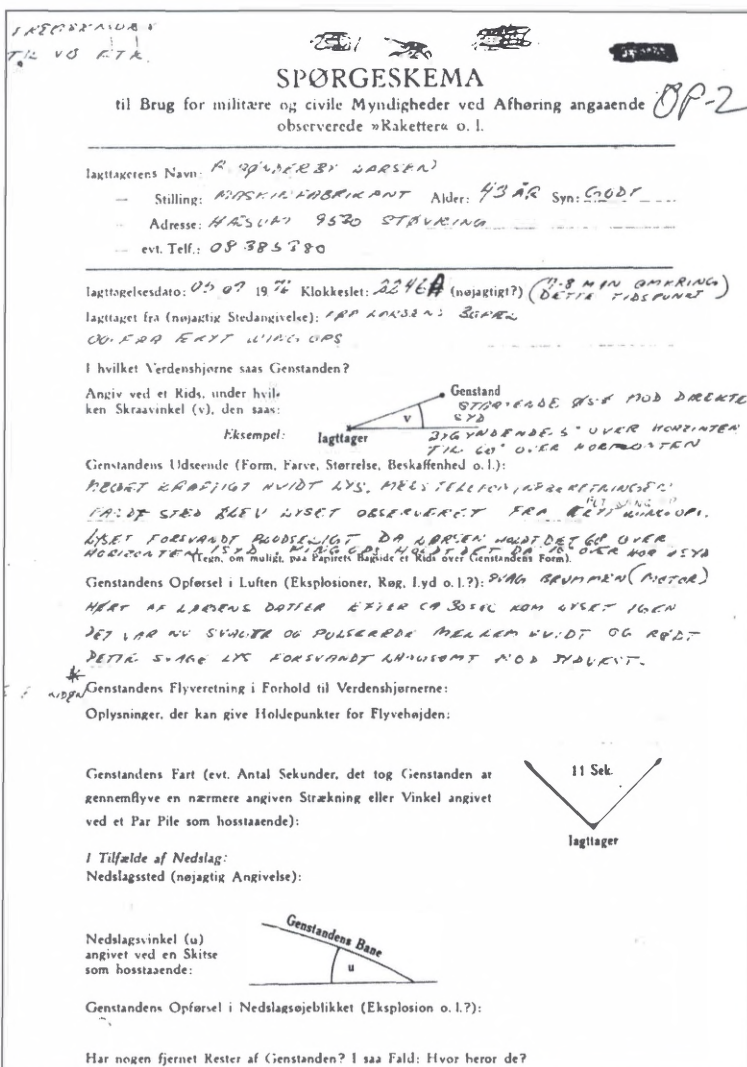 TIL VB ETK.
SPØRGESKEMA
til Brug for militære og civile Myndigheder ved Afhøring angaaende
observerede »Raketter« o. l.
OP-2
Iagttagerens Navn: LARSEN
— Stilling: MASKINFABRIKANT Alder: 43 ÅR Syn: GODT
— Adresse: HÆSUM 9530 STØVRING
— evt. Telf.:
Iagttagelsesdato: 19 Klokkeslet: 2246A (nøjagtigt?) (7-8 MIN OMKRING
DETTE TIDSPUNKT)
Iagttaget fra (nøjagtig Stedangivelse): FRA LARSENS BOPÆL
OG FRA WING OPS
I hvilket Verdenshjørne saas Genstanden?
Angiv ved et Rids, under hvil-
ken Skraavinkel (v), den saas:
Genstand
v
Eksempel:
Iagttager
MOD DIREKTE
SYD
BEGYNDENDE 5° OVER HORIZONTEN
TIL 60° OVER HORIZONTEN
Genstandens Udseende (Form, Farve, Størrelse, Beskaffenhed o. l.):
MEGET KRAFTIGT HVIDT LYS, MENS TELEFON
FANDT STED BLEV LYSET OBSERVERET FRA WING OPS.
LYSET FORSVANDT PLUDSELIGT DA LARSEN HOLDT DET 60° OVER
HORIZONTEN I SYD WING OPS HOLDT DET DA OVER HOR I SYD
(Tegn, om muligt, paa Papirets Bagside et Rids over Genstandens Form).
Genstandens Opførsel i Luften (Eksplosioner, Røg, Lyd o. l.?): SVAG BRUMMEN (MOTOR)
HØRT AF LARSENS DATTER EFTER CA 30 SEK KOM LYSET IGEN
DET VAR NU SVAGERE OG PULSEREDE MELLEM HVIDT OG RØDT
DETTE SVAGE LYS FORSVANDT LANGSOMT MOD SYDVEST.
Genstandens Flyveretning i Forhold til Verdenshjørnerne:
Oplysninger, der kan give Holdepunkter for Flyvehøjden:
Genstandens Fart (evt. Antal Sekunder, det tog Genstanden at
gennemflyve en nærmere angiven Strækning eller Vinkel angivet
ved et Par Pile som hosstaaende):
11 Sek.
Iagttager
I Tilfælde af Nedslag:
Nedslagssted (nøjagtig Angivelse):
Nedslagsvinkel (u)
angivet ved en Skitse
som hosstaaende:
Genstandens Bane
u
Genstandens Opførsel i Nedslagsøjeblikket (Eksplosion o. l.?):
Har nogen fjernet Rester af Genstanden? I saa Fald: Hvor heror de?